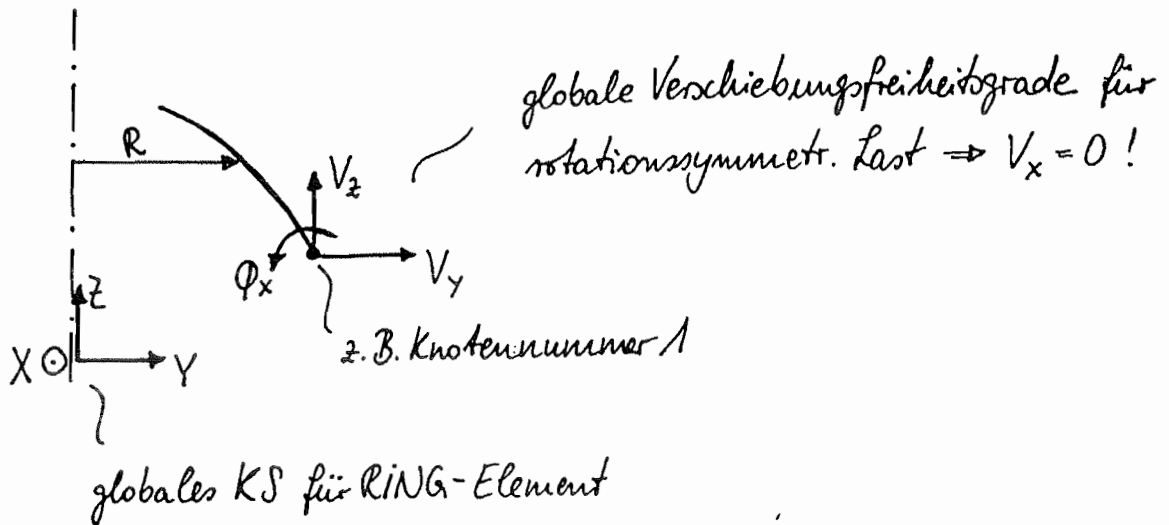 globale Verschiebungsfreiheitsgrade für
rotationssymmetr. Last ⇒ V_x = 0 !
R
V_z
φ_x
V_y
Z
z.B. Knotennummer 1
X
Y
globales KS für RING-Element